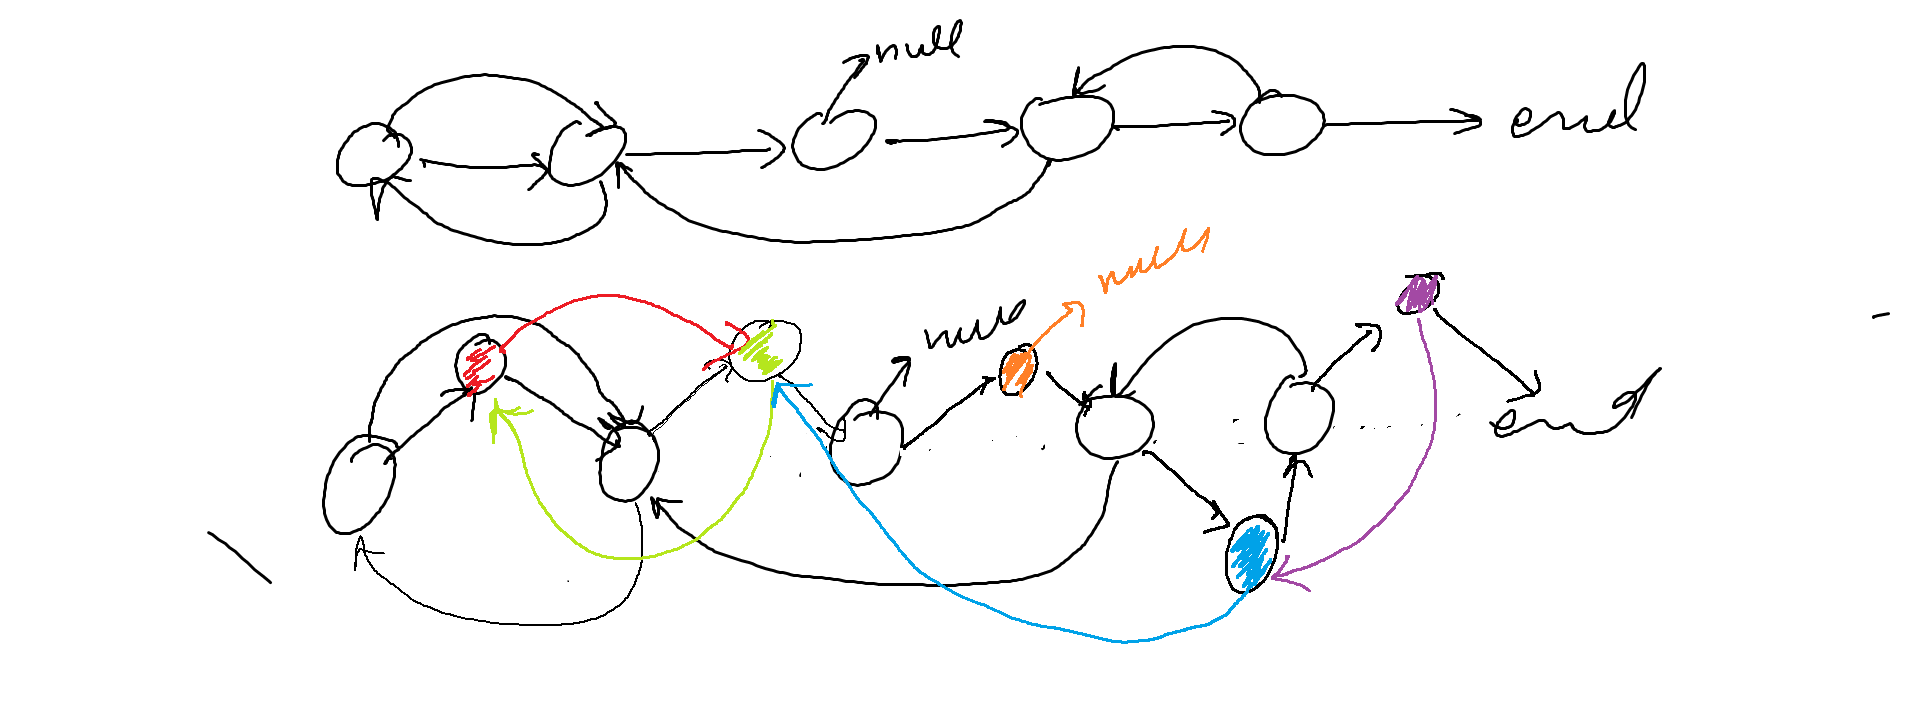 null
end
null
null
end